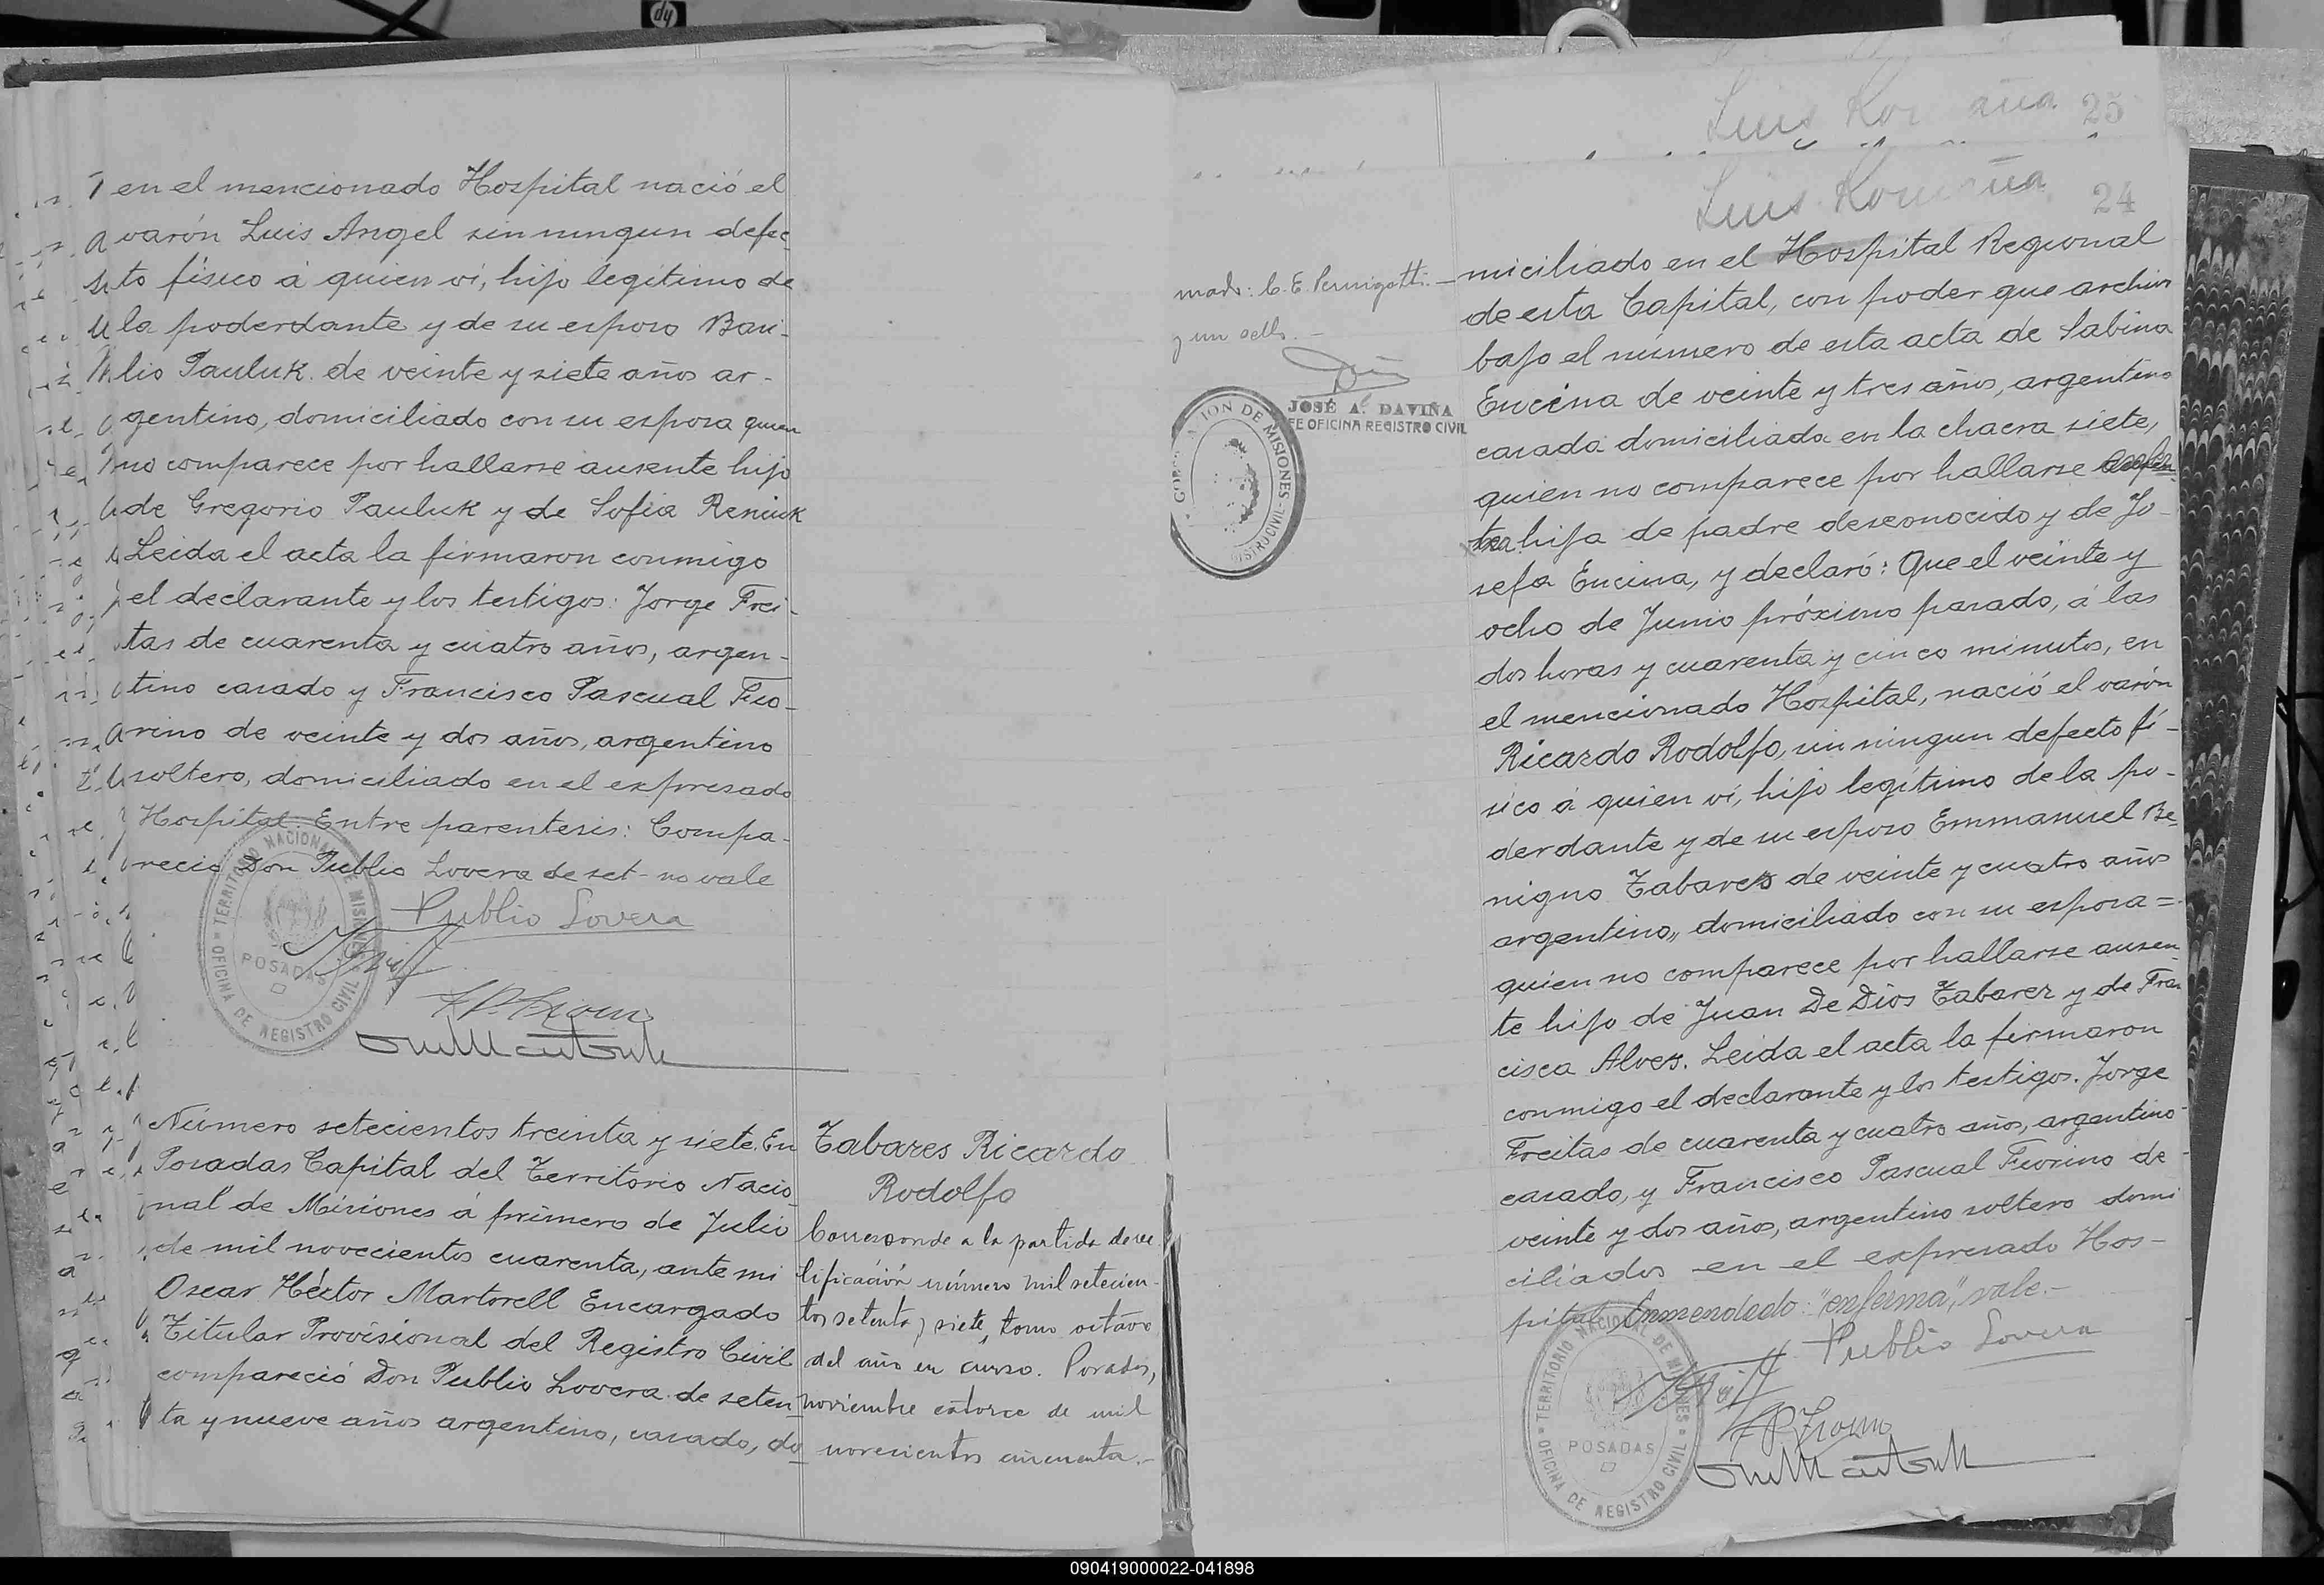 en el mencionado Hospital nació el
varón Luis Angel sin ningun defec-
to físico á quien ví, hijo legítimo de
la poderdante y de su esposo Basi-
lio Pauluk de veinte y siete años ar-
gentino, domiciliado con su esposa quien
no comparece por hallarse ausente hijo
de Gregorio Pauluk y de Sofia Reniuk
Leida el acta la firmaron conmigo
el declarante y los testigos: Jorge Frei-
tas de cuarenta y cuatro años, argen-
tino casado y Francisco Pascual Fio-
rino de veinte y dos años, argentino
soltero, domiciliado en el expresado
Hospital. Entre parentesis: Compa-
recio Don Publio Lovera de set- no vale
Publio Lovera
TERRITORIO NACIONAL DE MISIONES
POSADAS
OFICINA DE REGISTRO CIVIL
Número setecientos treinta y siete. En
Posadas Capital del Territorio Nacio-
nal de Misiones á primero de Julio
de mil novecientos cuarenta, ante mi
Oscar Héctor Martorell Encargado
Titular Provisional del Registro Civil
compareció Don Publio Lovera de seten-
ta y nueve años argentino, casado, do-
Tabares Ricardo
Rodolfo
Corresponde a la partida de rec
tificación número mil setecien-
tos setenta y siete, tomo octavo
del año en curso. Posadas,
noviembre catorce de mil
novecientos cincuenta.-
Luis 25
Luis 24
y un sello.-
JOSÉ A. DAVIÑA
JEFE OFICINA REGISTRO CIVIL
GOBERNACION DE MISIONES
REGISTRO CIVIL
miciliado en el Hospital Regional
de esta Capital, con poder que archivo
bajo el número de esta acta de Sabina
Encina de veinte y tres años, argentina
casada domiciliada en la chacra siete,
quien no comparece por hallarse enfer-
ma hija de padre desconocido y de Jo-
sefa Encina, y declaró: Que el veinte y
ocho de Junio próximo pasado, á las
dos horas y cuarenta y cinco minutos, en
el mencionado Hospital, nació el varón
Ricardo Rodolfo, sin ningun defecto fí-
sico á quien ví, hijo legítimo de la po-
derdante y de su esposo Emmanuel Be-
nigno Tabares de veinte y cuatro años
argentino,, domiciliado con su esposa =
quien no comparece por hallarse ausen-
te hijo de Juan De Dios Tabarez y de Fran
cisca Alves. Leida el acta la firmaron
conmigo el declarante y los testigos. Jorge
Freitas de cuarenta y cuatro años, argentino-
casado, y Francisco Pascual Fiorino de-
veinte y dos años, argentino soltero domi
ciliados en el expresado Hos-
pital. Enmendado: "enferma", vale.-
Publio Lovera
TERRITORIO NACIONAL DE MISIONES
POSADAS
OFICINA DE REGISTRO CIVIL
090419000022-041898